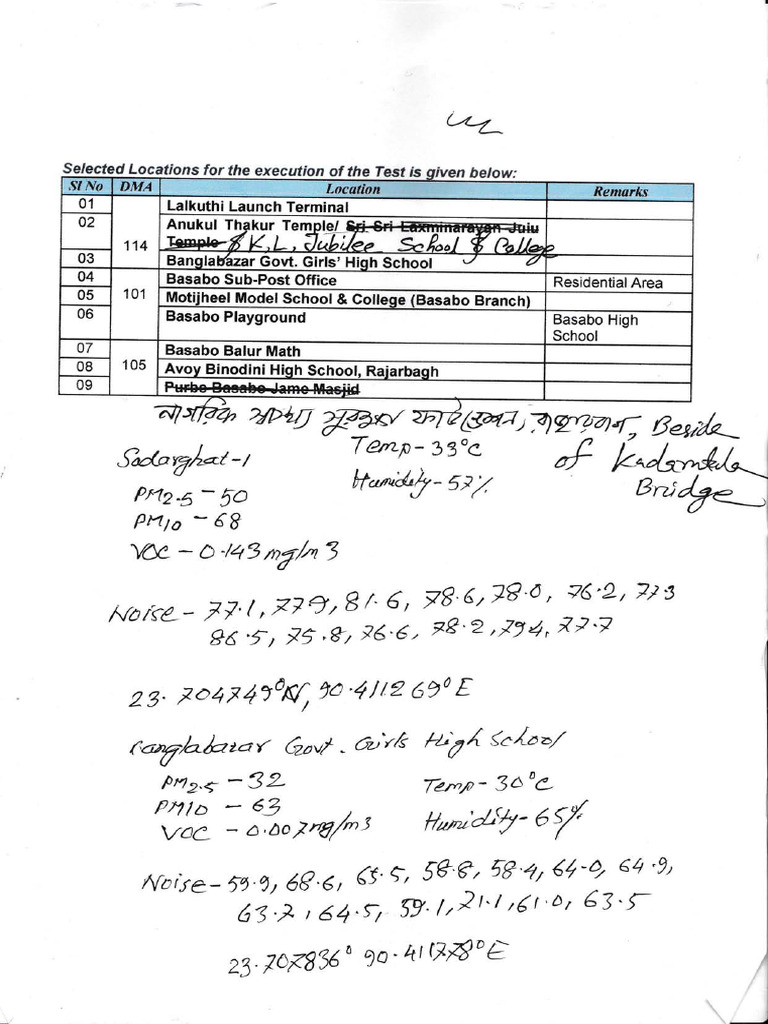 Selected Locations for the execution of the Test is given below:
Sl No DMA Location Remarks
01 Lalkuthi Launch Terminal
02 Anukul Thakur Temple/ Sri Sri Laxminarayan Juiu
Temple & K.L, Jubilee School & College
114
03 Banglabazar Govt. Girls' High School
04 Basabo Sub-Post Office Residential Area
05 101 Motijheel Model School & College (Basabo Branch)
06 Basabo Playground Basabo High
School
07 Basabo Balur Math
08 105 Avoy Binodini High School, Rajarbagh
09 Purbo Basabo Jame Masjid
নাগরিক স্বাস্থ্য সুরক্ষা Beside
of Kadamtala
Bridge
Sadarghat-1 Temp-33°C
PM2.5-50 Humidity-57%
PM10-68
VOC-0.143mg/m3
Noise-77.1, 77.9, 81.6, 78.6, 78.0, 76.2, 77.3
86.5, 75.8, 76.6, 78.2, 79.4, 77.7
23.704749°N, 90.411269°E
Banglabazar Govt. Girls High School
PM2.5-32 Temp-30°C
PM10-63 Humidity-65%
VOC-0.007mg/m3
Noise-59.9, 68.6, 65.5, 58.8, 58.4, 64.0, 64.9,
63.7, 64.5, 59.1, 71.1, 61.0, 63.5
23.707836° 90.411778°E